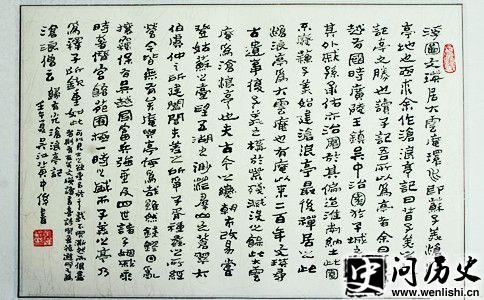 浮圖文瑛居大雲庵環水即蘇子美滄浪
亭地也亟求余作滄浪亭記曰昔子美之
記亭之勝也請子記吾所以為亭者余曰昔吳
越有國時廣陵王鎮吳中治園於子城之西南
其外戚孫承佑亦治園於其偏迨淮南納土此園
不廢蘇子美始建滄浪亭最後禪居之此
滄浪亭為大雲庵也有庵以來二百年文瑛尋
古遺事復子美之構於荒殘滅沒之餘此大雲
庵為滄浪亭也夫古今之變朝市改易嘗
登姑蘇之台望五湖之渺茫群山之蒼翠太
伯虞仲之所建闔閭夫差之所爭子胥種蠡之所經
營今皆無有矣庵與亭何為者哉雖然錢鏐因亂
攘竊保有吳越國富兵強垂及四世諸子姻戚乘
時奢僭宮館苑囿極一時之盛而子美之亭乃
為釋子所欽重如此
滄浪僧云 歸有光滄浪亭記
壬午夏吳
書
问历史
www.wenlishi.cn